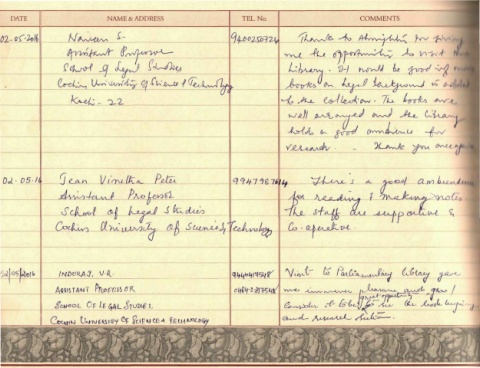 DATE NAME & ADDRESS TEL. No. COMMENTS
02-05-2016 Naveen S. Thanks to Almighty for giving
Assistant Professor me the opportunity to visit
School of Legal Studies Library. It would be good if more
Cochin University of Science & Technology books on legal background is added
Kochi - 22 to the collection. The books are
well arranged and the library
holds a good ambience for
research. Thank you once again
02-05-16 Jean Vinitha Peter There's a good ambience
Assistant Professor for reading & making notes
School of Legal Studies The staff are supportive &
Cochin University of Science & Technology Co-operative.
INDURAJ. V.R. Visit to Parliamentary Library gave
ASSISTANT PROFESSOR me immense pleasure and
SCHOOL OF LEGAL STUDIES great opportunity
COCHIN UNIVERSITY OF SCIENCE & TECHNOLOGY and research